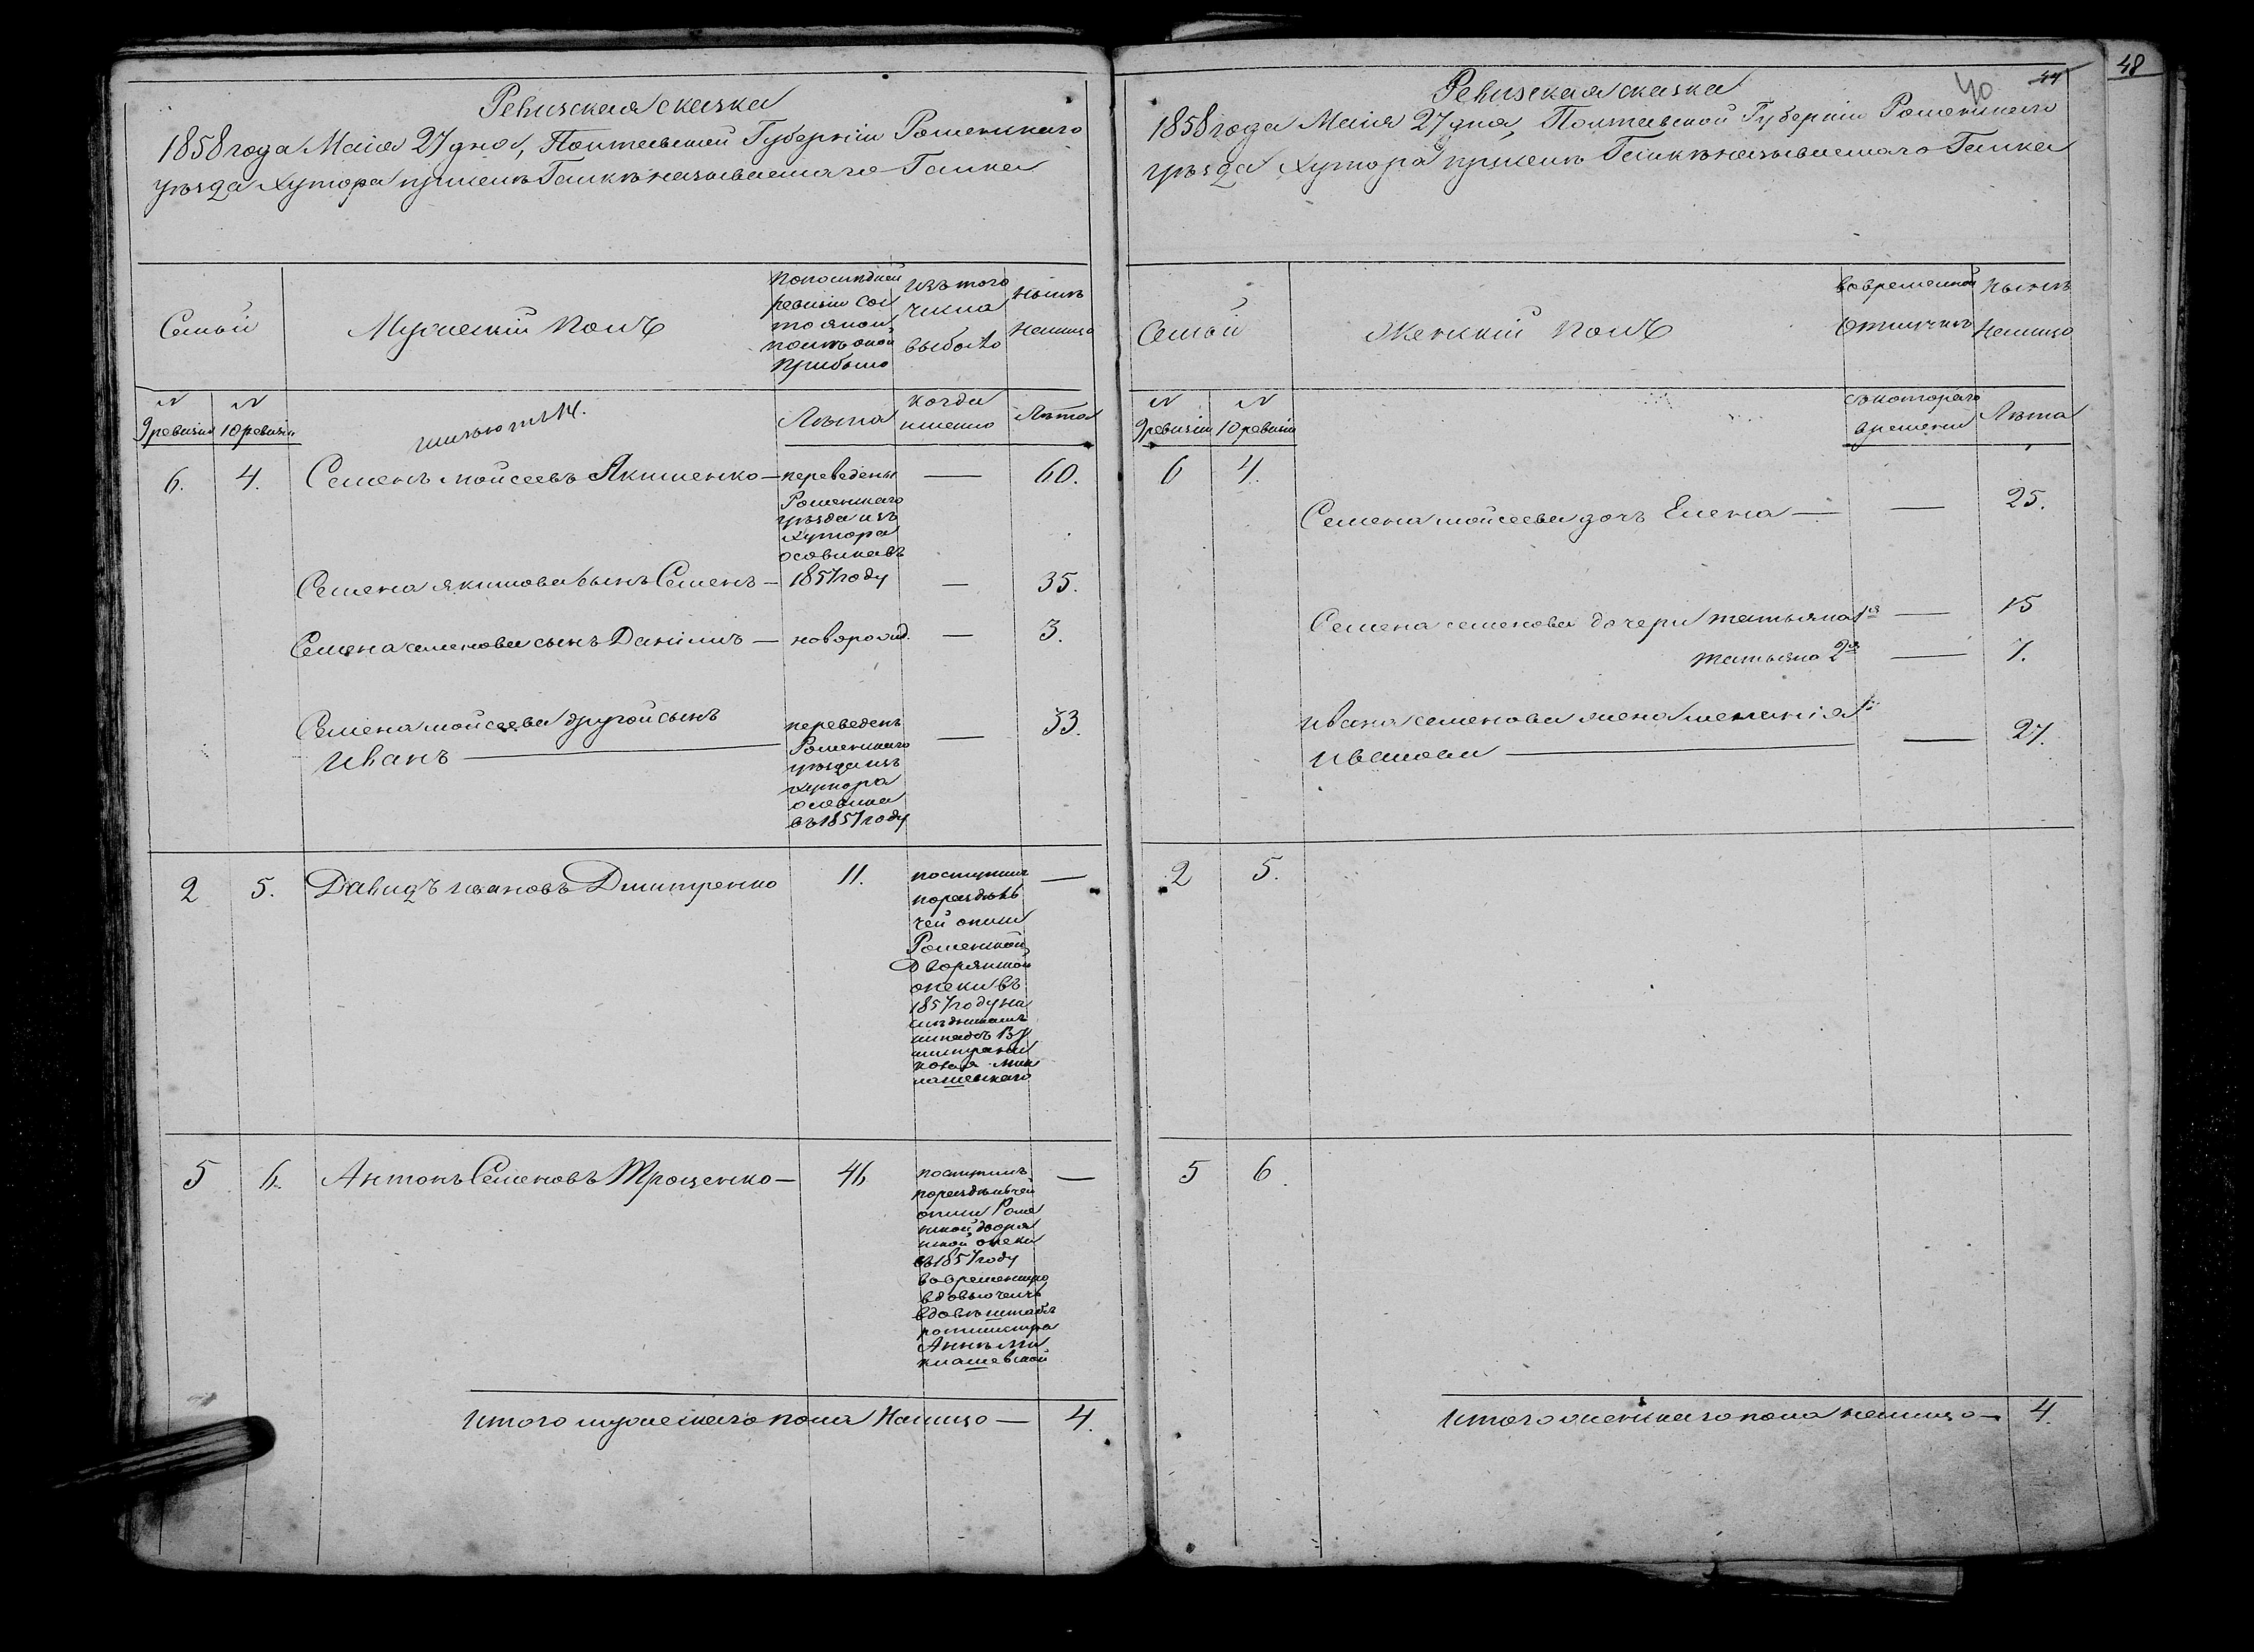 Ревизская сказка
1858 года Маiя 27 дня, Полтавской Губернiи Роменскаго
уѣзда Хутора при Галкѣ называемаго Галка
Семьи
Мужескiй полъ
По последней
ревизiи сос
тояло и
послѣ оной
прибыло
Изъ того
числа
выбыло
Нынѣ
налицо
№
9 ревизiи
№
10 ревизiи
Лѣта
когда
именно
Лѣта
6. 4. Семенъ мойсеевъ Якименко — переведены — 60.
Роменскаго
уѣзда изъ
хутора
осовика въ
Семена якимова сынъ Семенъ — 1857 году — 35.
Семена семенова сынъ Данiилъ — новорожд. — 3.
Семена мойсеева другой сынъ
Иванъ — переведенъ — 33.
Роменскаго
уѣзда изъ
хутора
осовика
въ 1857 году
2 5. Давидъ ивановъ Дмитренко 11. поступилъ —
по раздѣль
ной описи
Роменской
Дворянской
опеки въ
1857 году на
новая Мик
лашевскаго
5 6. Антонъ Семеновъ Трощенко — 46 поступилъ —
по раздѣльной
описи Роме
нской дворя
нской опеки
въ 1857 году
вдовью часть
вдовѣ штабъ
ротмистра
Аннѣ Ми
клашевской
Итого мужескаго пола Налицо — 4.
48
44
40
Ревизская сказка
1858 года Маiя 27 дня, Полтавской Губернiи Роменскаго
уѣзда Хутора при Галкѣ называемаго Галка
Семьи
Женскiй полъ
Во временной
отлучкѣ
Нынѣ
налицо
№
9 ревизiи
№
10 ревизiи
Съ котораго
времени
Лѣта
6 4.
Семена мойсеева дочь Елена — — 25.
Семена семенова дочери татьяна 1я — 15
татьяна 2я — 7.
Ивана семенова жена меланiя
Иванова — — 27.
2 5.
5 6.
Итого женскаго пола налицо — 4.